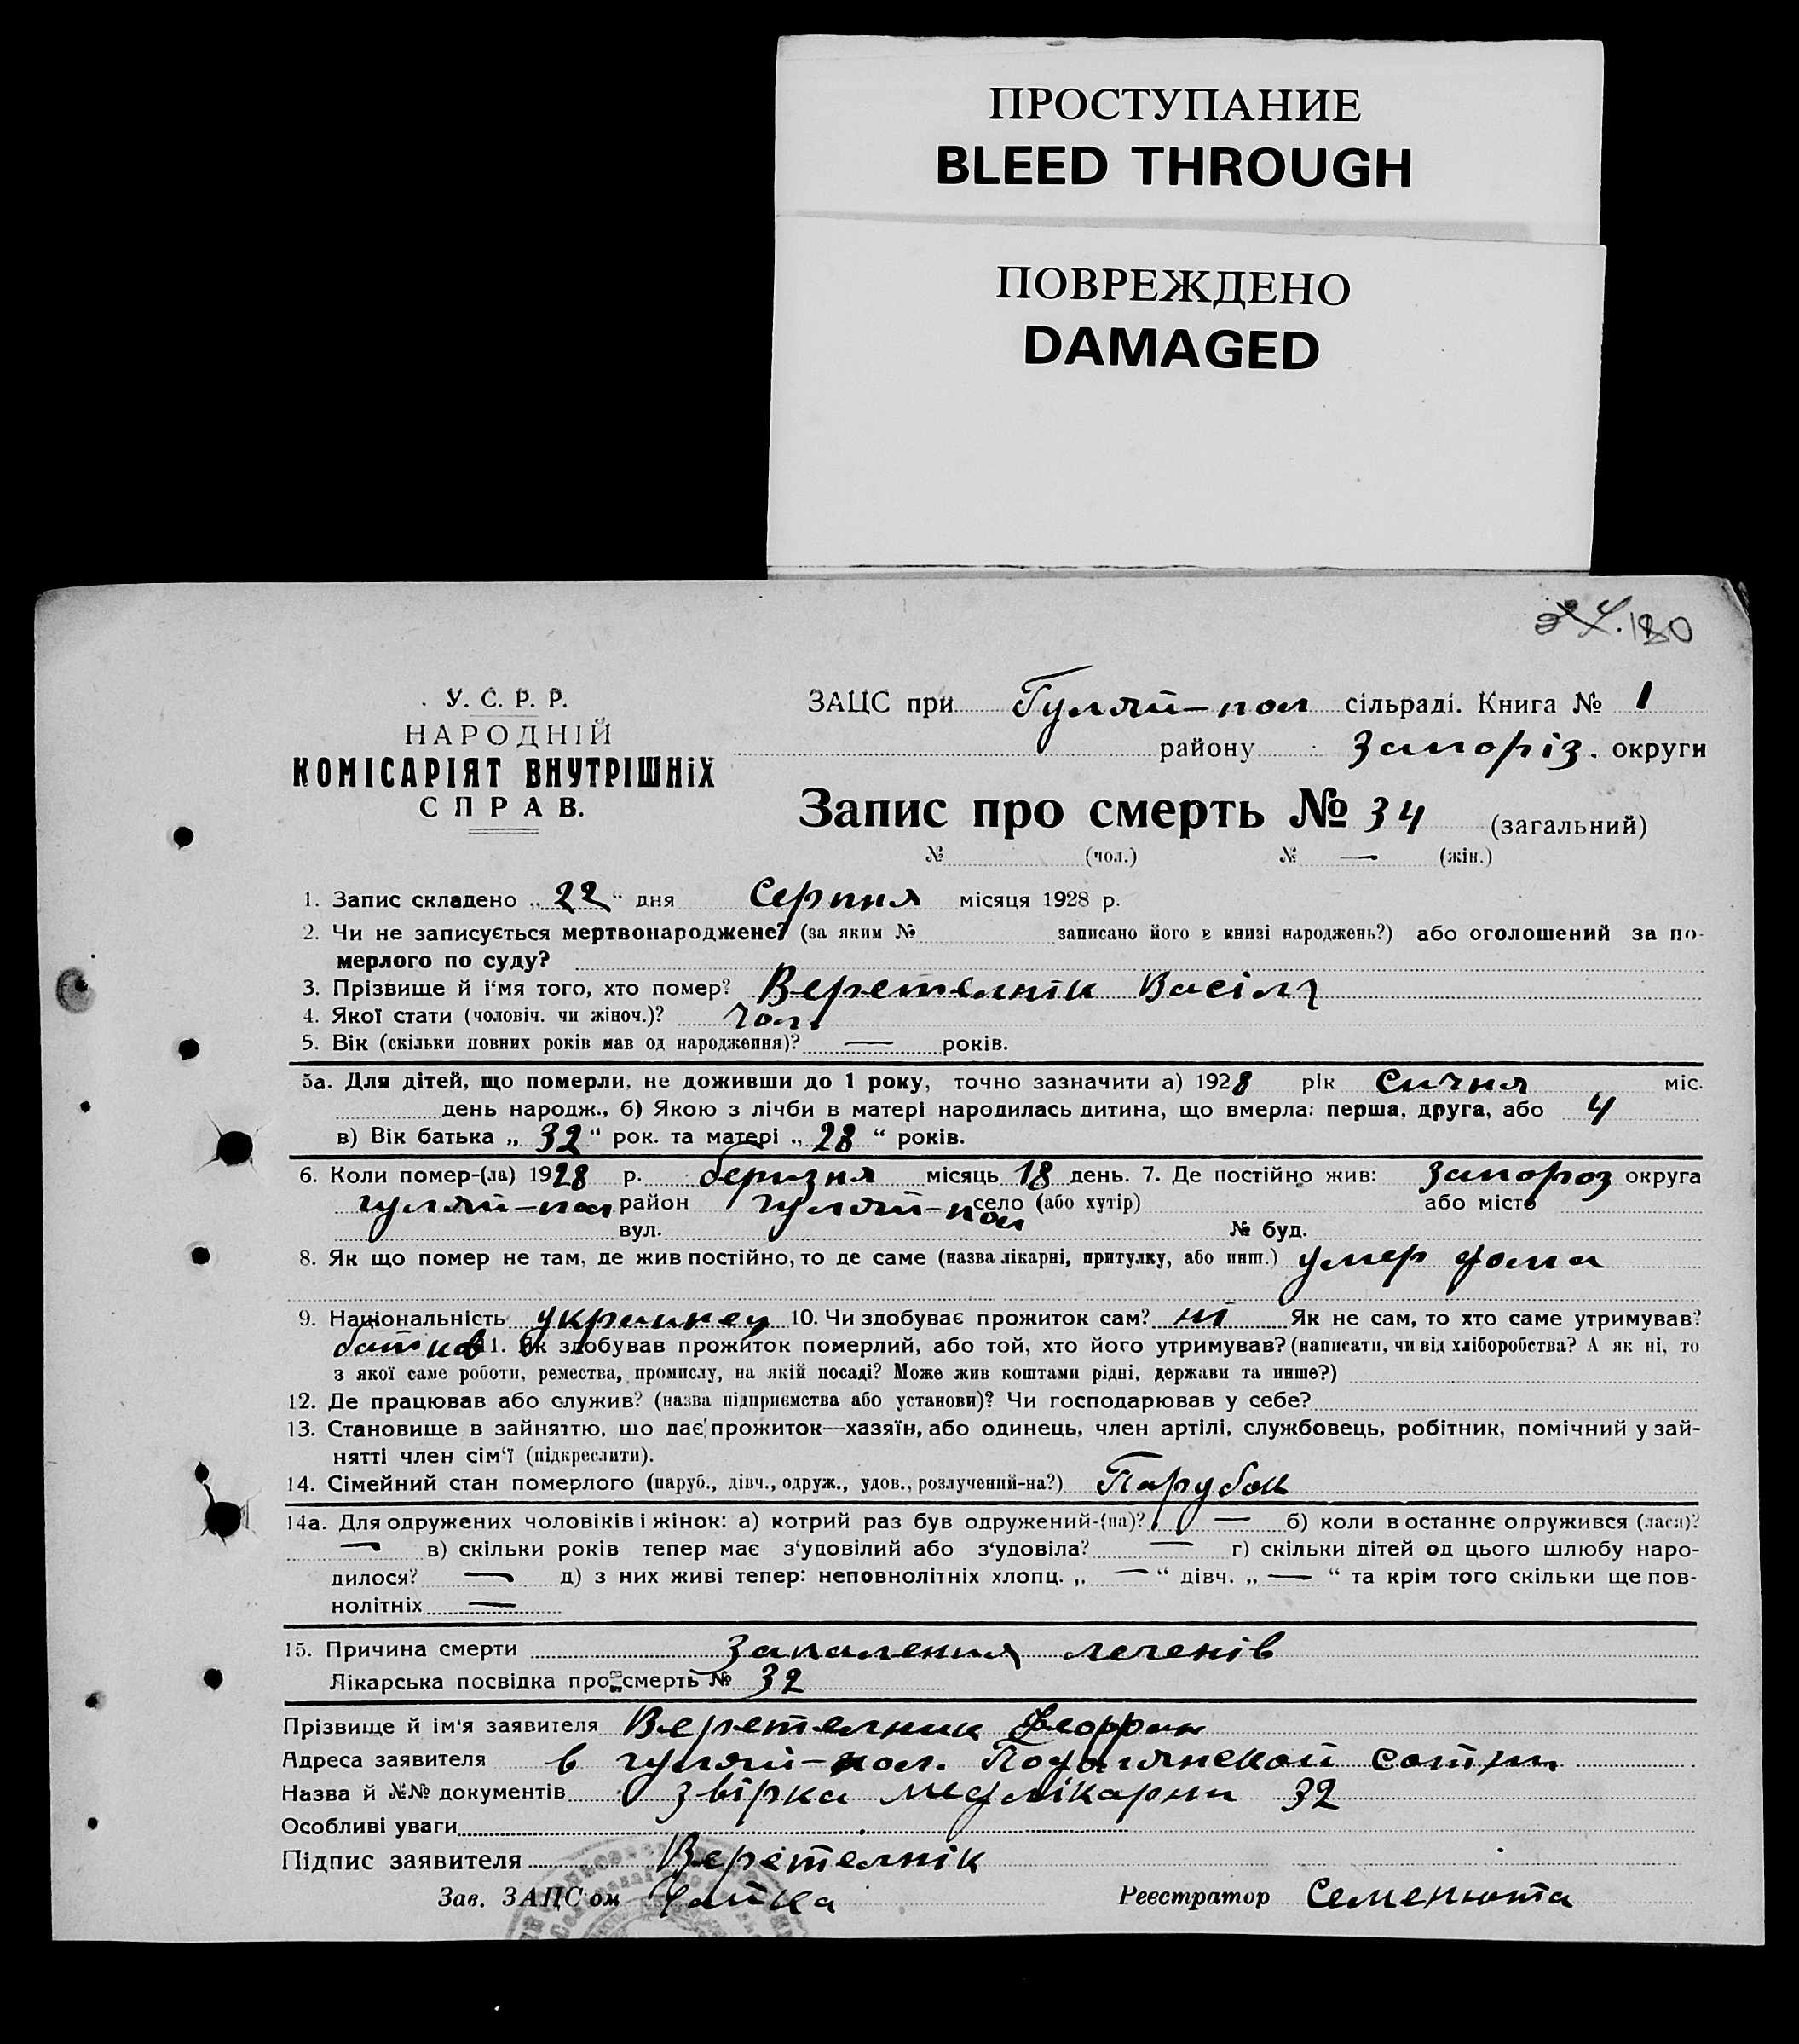 ПРОСТУПАНИЕ
BLEED THROUGH
ПОВРЕЖДЕНО
DAMAGED
180
У. С. Р. Р.
НАРОДНІЙ
КОМІСАРІЯТ ВНУТРІШНІХ
СПРАВ.
ЗАЦС при Гуляй-пол сільраді. Книга № 1
району Запоріз. округи
Запис про смерть № 34 (загальний)
№ (чол.) № — (жін.)
1. Запис складено „22“ дня Серпня місяця 1928 р.
2. Чи не записується мертвонароджене? (за яким № записано його в книзі народжень?) або оголошений за по-
мерлого по суду?
3. Прізвище й і‘мя того, хто помер? Веретелнік Васіль
4. Якої стати (чоловіч. чи жіноч.)? Чол.
5. Вік (скільки повних років мав од народження)? — років.
5а. Для дітей, що померли, не доживши до 1 року, точно зазначити а) 1928 рік Сичня міс.
день народж., б) Якою з лічби в матері народилась дитина, що вмерла: перша, друга, або 4
в) Вік батька „32“ рок. та матері „28“ років.
6. Коли помер-(ла) 1928 р. березня місяць 18 день. 7. Де постійно жив: Запороз округа
гуляй-пол район гуляй-пол село (або хутір) або місто
вул. № буд.
8. Як що помер не там, де жив постійно, то де саме (назва лікарні, притулку, або инш.) умер дома
9. Національність українец 10. Чи здобуває прожиток сам? ні Як не сам, то хто саме утримував?
батьков 11. Як здобував прожиток померлий, або той, хто його утримував? (написати, чи від хліборобства? А як ні, то
з якої саме роботи, ремества, промислу, на якій посаді? Може жив коштами рідні, держави та инше?)
12. Де працював або служив? (назва підприємства або установи)? Чи господарював у себе?
13. Становище в зайняттю, що дає прожиток—хазяїн, або одинець, член артілі, службовець, робітник, помічний у зай-
нятті член сім‘ї (підкреслити).
14. Сімейний стан померлого (паруб., дівч., одруж., удов., розлучений-на?) Парубок
14а. Для одружених чоловіків і жінок: а) котрий раз був одружений-(на)? — б) коли в останнє одружився (лася)?
— в) скільки років тепер має з‘удовілий або з‘удовіла? — г) скільки дітей од цього шлюбу наро-
дилося? — д) з них живі тепер: неповнолітніх хлопц. „—“ дівч. „—“ та крім того скільки ще пов-
нолітніх —
15. Причина смерти Запаления легенів
Лікарська посвідка про смерть № 32
Прізвище й ім‘я заявителя Веретелник
Адреса заявителя в гуляй-пол. Подолянской сотни
Назва й №№ документів звірка медлікарни 32
Особливі уваги
Підпис заявителя Веретелнік
Зав. ЗАЦС‘ом Чайка Реєстратор Семенюта